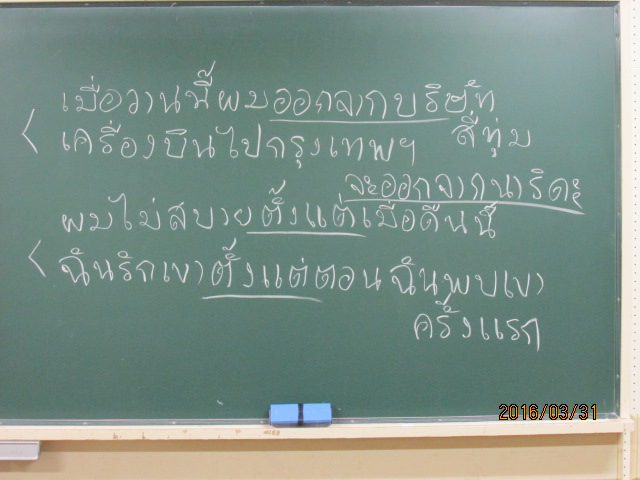 เมื่อวานนี้ผมออกจากบริษัท
สี่ทุ่ม
เครื่องบินไปกรุงเทพฯ
จะออกจากนาริตะ
ผมไม่สบายตั้งแต่เมื่อคืนนี้
ฉันรักเขาตั้งแต่ตอนฉันพบเขา
ครั้งแรก
2016/03/31